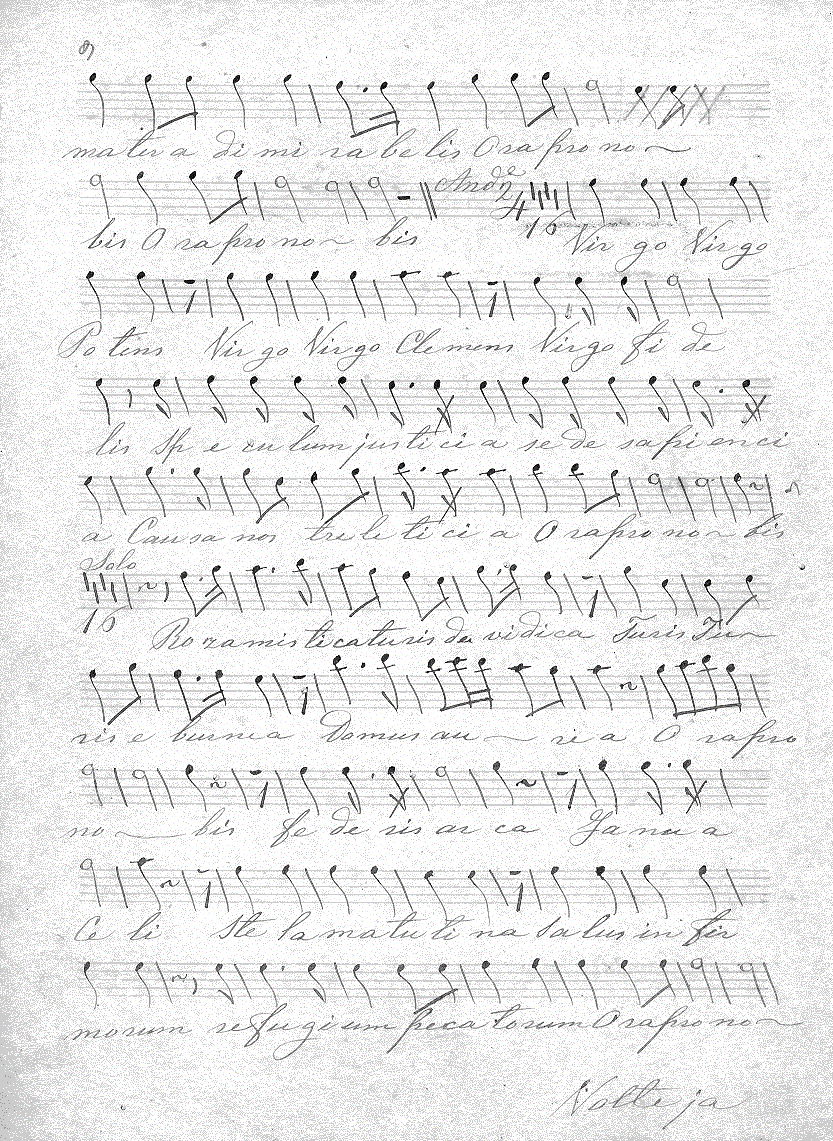 mater a di mi ra be lis Ora pro no
bis Ora pro no bis
And.e 2/4 16 Vir go Virgo
Po tens Virgo Virgo Clemens Virgo fi de
lis Sp e cu lum justi ci a se de sapi en ci
a Causa nos tre le ti ci a Ora pro no bis
Solo
16 Roza misti ca turis da vi di ca Turis Tu
ris e burnea Domus au re a O ra pro
no bis fe de ris ar ca Ja nu a
Ce li Ste la matu ti na Salus in fir
morum refu gi um peca torum Ora pro no
Volte ja